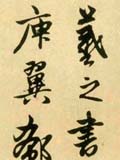 羲之書
庾翼郗